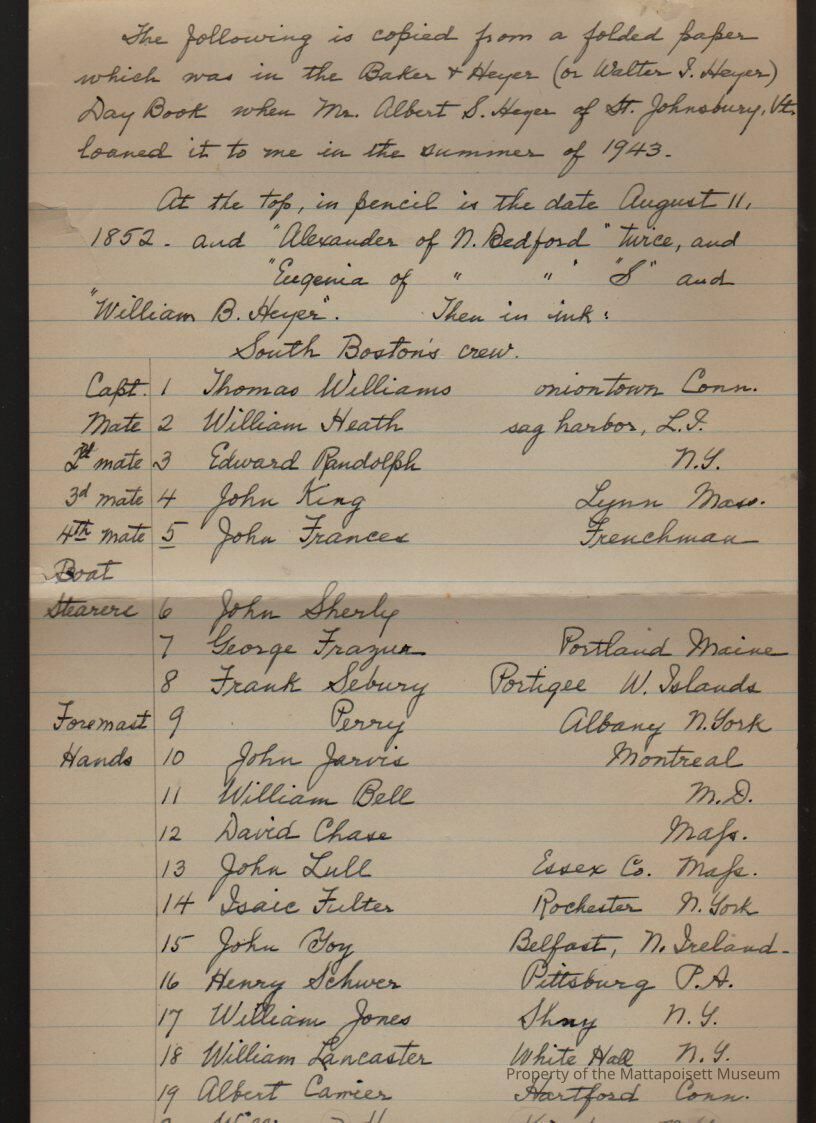 The following is copied from a folded paper
which was in the Baker & Heyer (or Walter I. Heyer)
Day Book when Mr. Albert S. Heyer of St. Johnsbury, Vt.
loaned it to me in the summer of 1943.
At the top, in pencil is the date August 11,
1852. and "Alexander of N. Bedford" twice, and
"Eugenia of " " " "S" and
"William B. Heyer". Then in ink:
South Boston's crew.
Capt. 1 Thomas Williams oniontown Conn.
Mate 2 William Heath sag harbor, L.I.
2d mate 3 Edward Randolph N.Y.
3d mate 4 John King Lynn Mass.
4th mate 5 John Frances Frenchman
Boat
Stearers 6 John Sherly
7 George Frazur Portland Maine
8 Frank Sebury Portigee W. Islands
Foremast 9 Perry Albany N.York
Hands 10 John Jarvis Montreal
11 William Bell M.D.
12 David Chase Mass.
13 John Lull Essex Co. Mass.
14 Isaic Fulter Rochester N.York
15 John Belfast, N. Ireland.
16 Henry Schwer Pittsburg P.A.
17 William Jones N.Y.
18 William Lancaster White Hall N.Y.
Property of the Mattapoisett Museum
19 Albert Camier Hartford Conn.